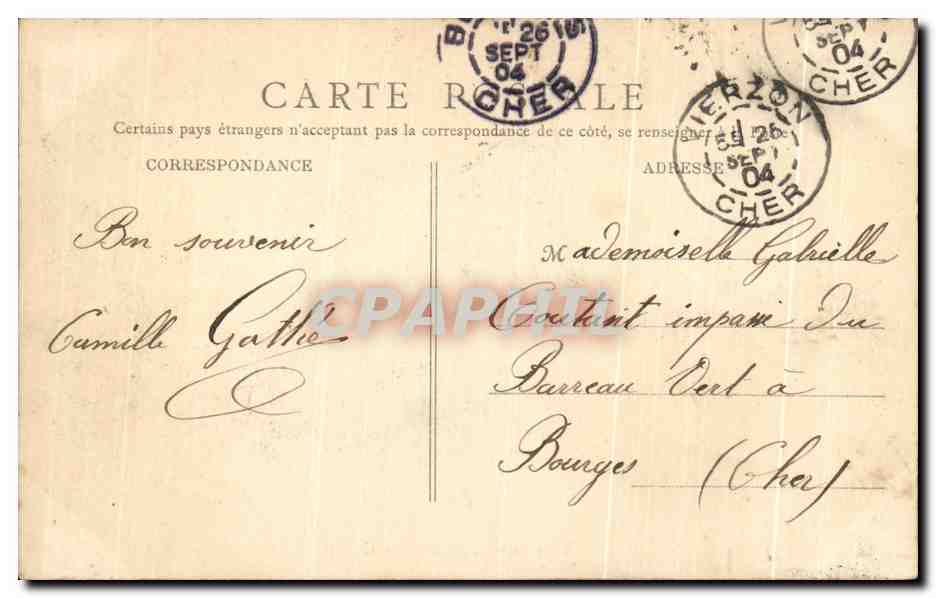 26
SEPT
04
CHER
SEPT
04
CHER
CARTE POSTALE
VIERZON
26
SEPT
04
CHER
Certains pays étrangers n'acceptant pas la correspondance de ce côté, se renseigner à la Poste
CORRESPONDANCE
ADRESSE
Bon souvenir
Camille Gathé
Mademoiselle Gabrielle
Coutant impasse du
Barreau Vert à
Bourges (Cher)
CPAPHIL